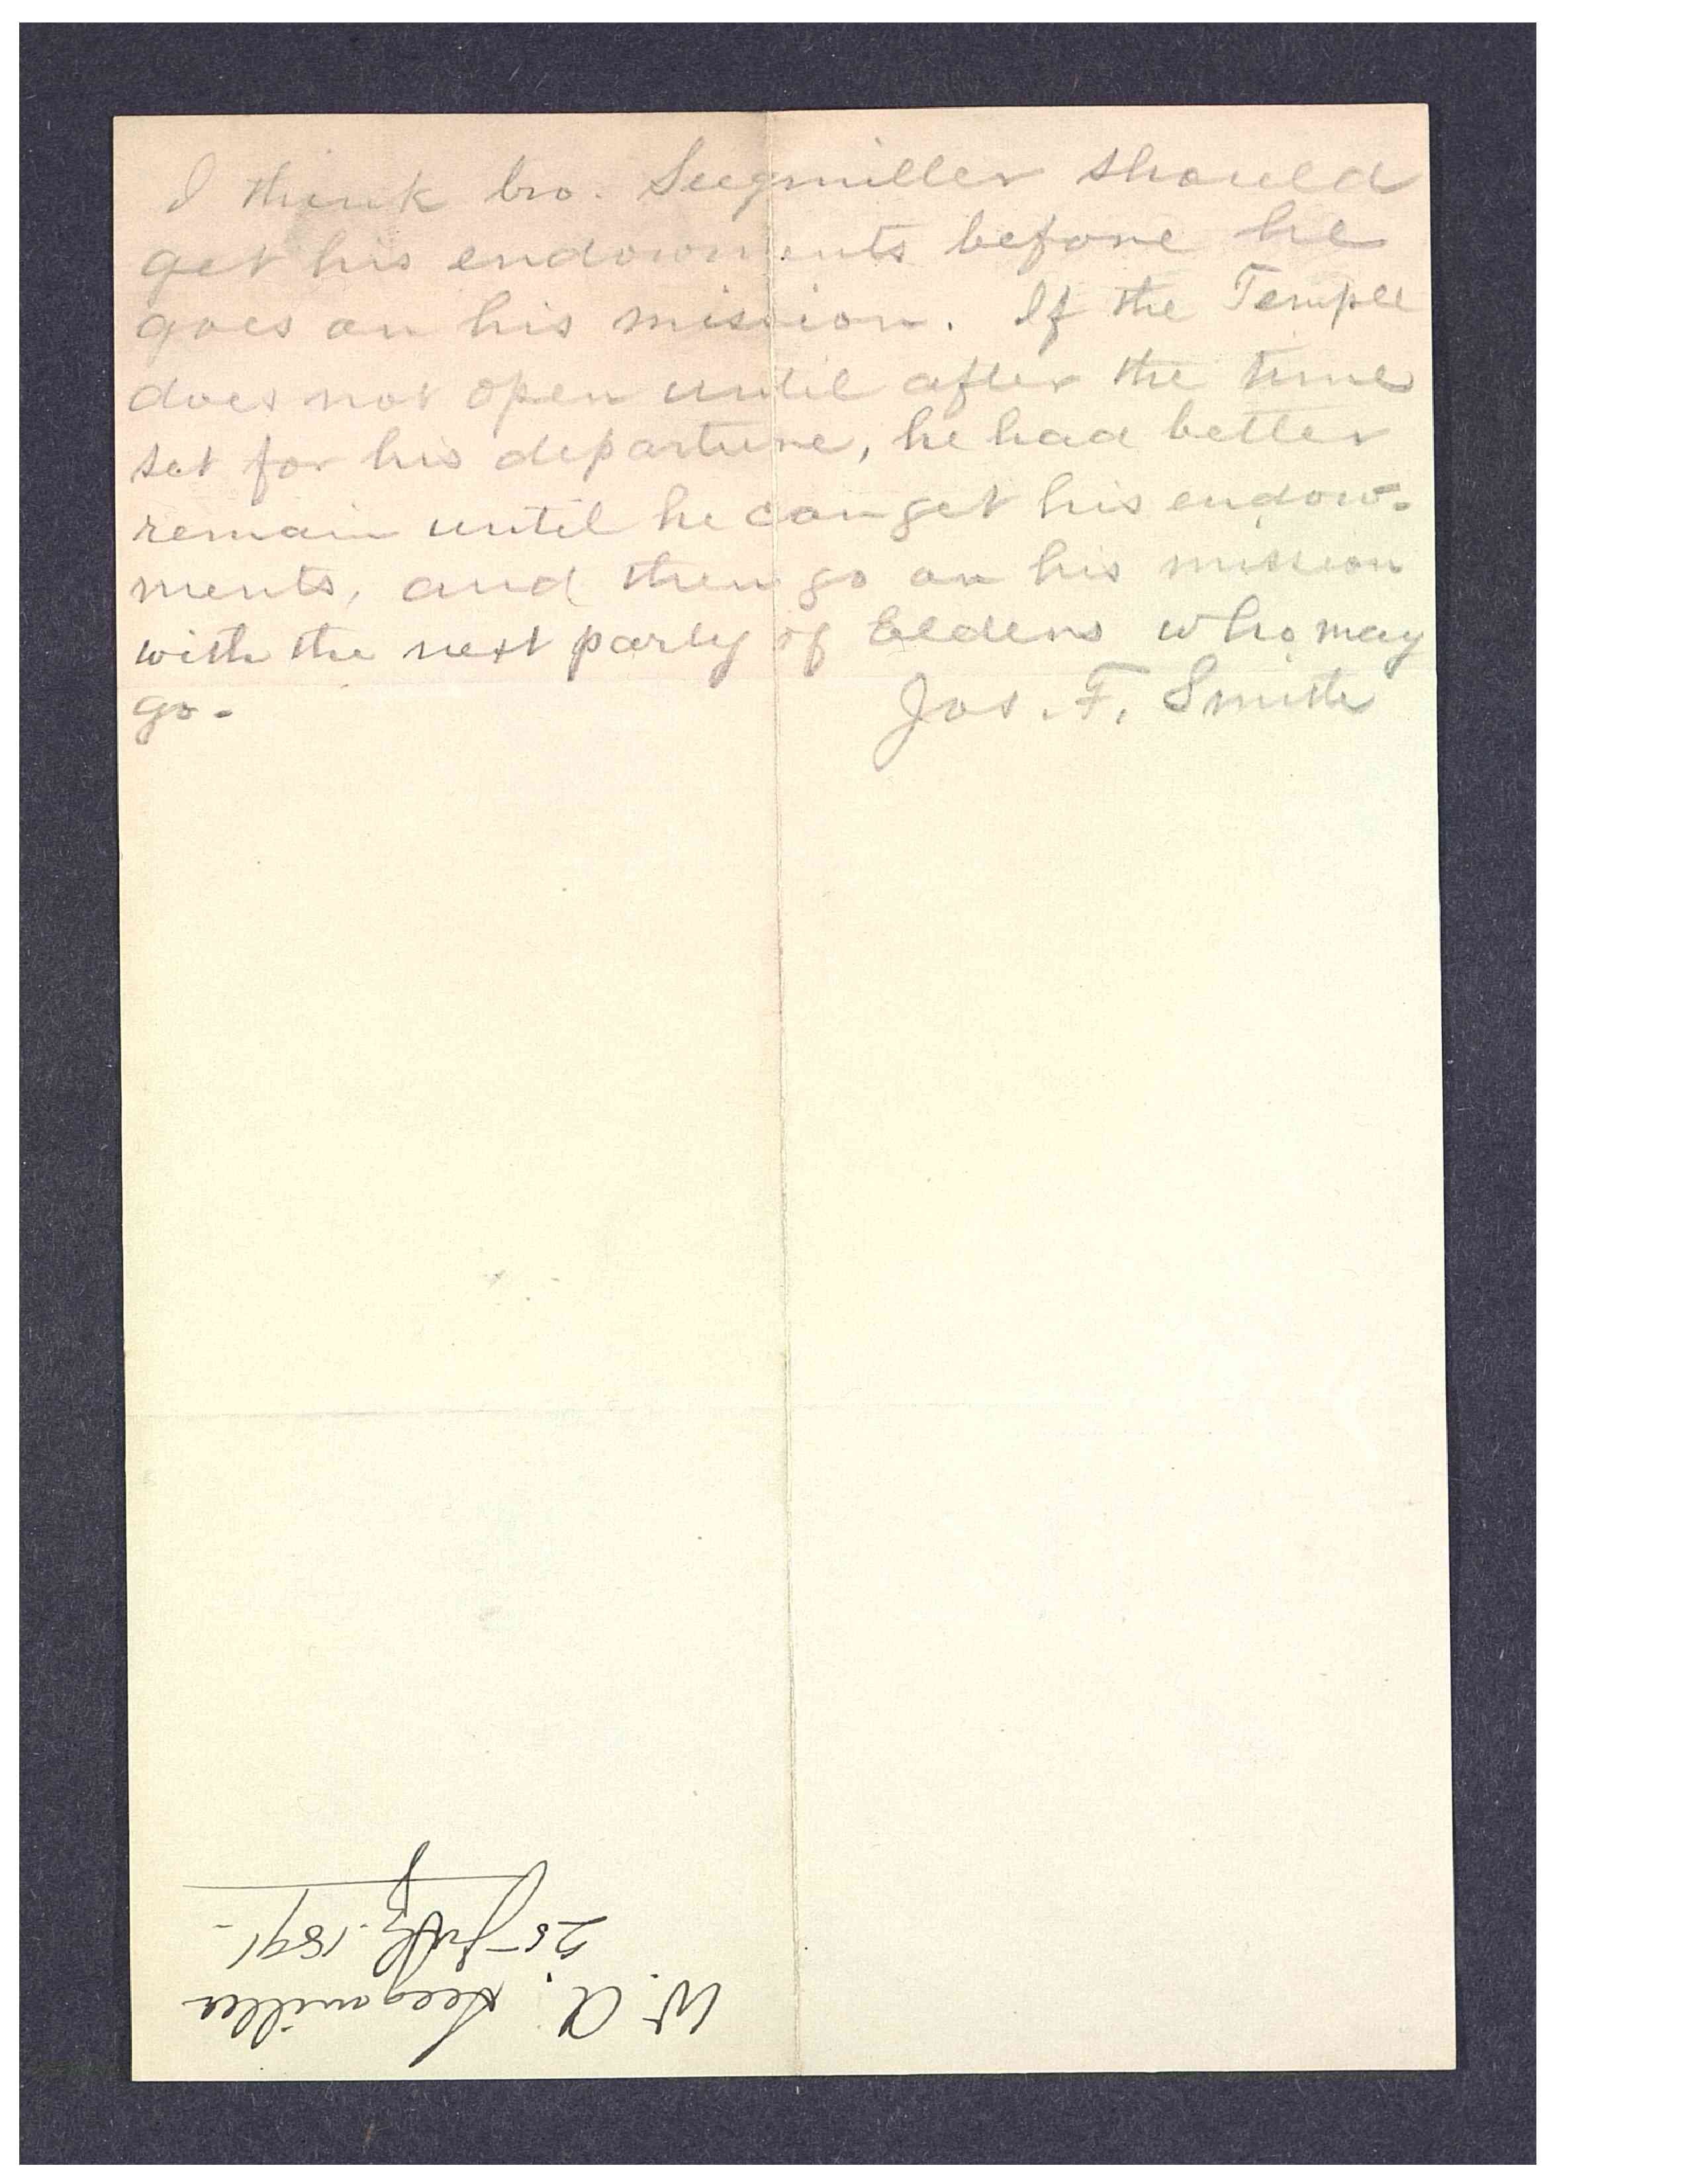 I think bro. Seegmiller should
get his endowments before he
goes on his mission. If the Temple
does not open until after the time
set for his departure, he had better
remain until he can get his endow-
ments, and then go on his mission
with the next party of Elders who may
go.
Jos. F. Smith
W. A. Seegmiller
25 July. 1891-